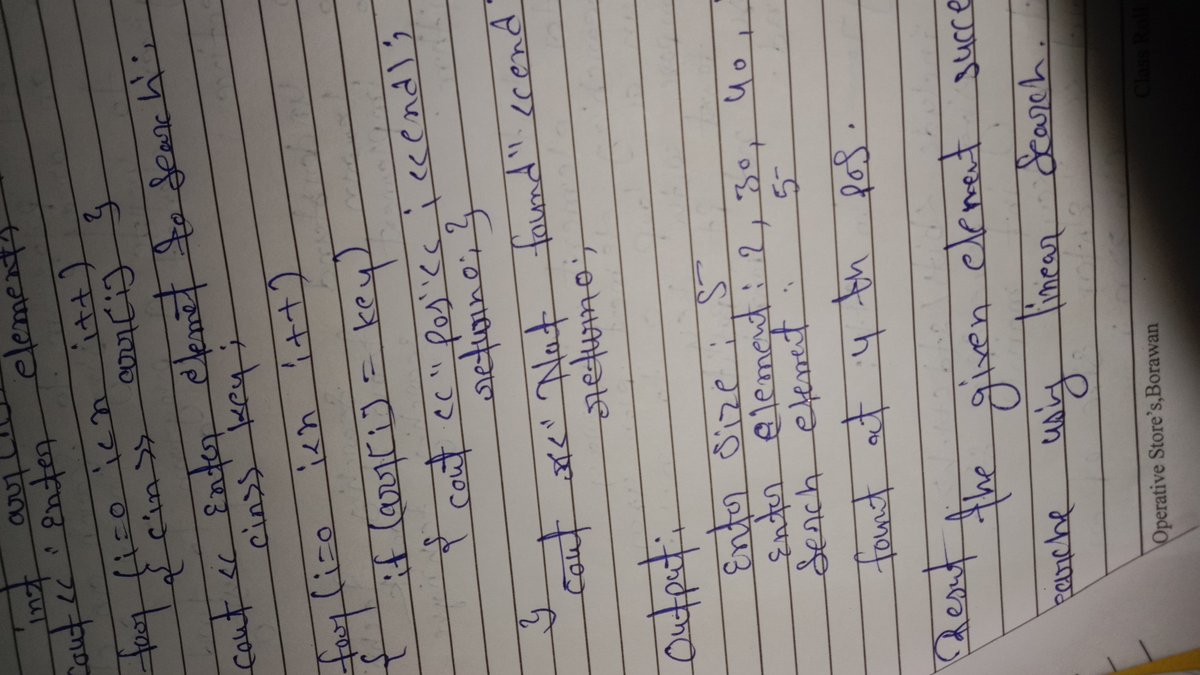 int arr
cout << "Enter elements"
for (i=0 i<n i++)
{ cin >> arr[i] }
cout << Enter elemet to search";
cin >> key;
for (i=0 i<n i++)
{ if (arr[i] = key)
{ cout << "pos" << i << endl;
return 0; }
}
cout << "Not found" << end
return 0;
Output:
Enter Size: 5
Enter element: 2, 30, 40,
Serch elemet: 5
fount at 4 th pos.
Result the given element succe
searche usiy linear search.
Operative Store's, Borawan
Class Roll